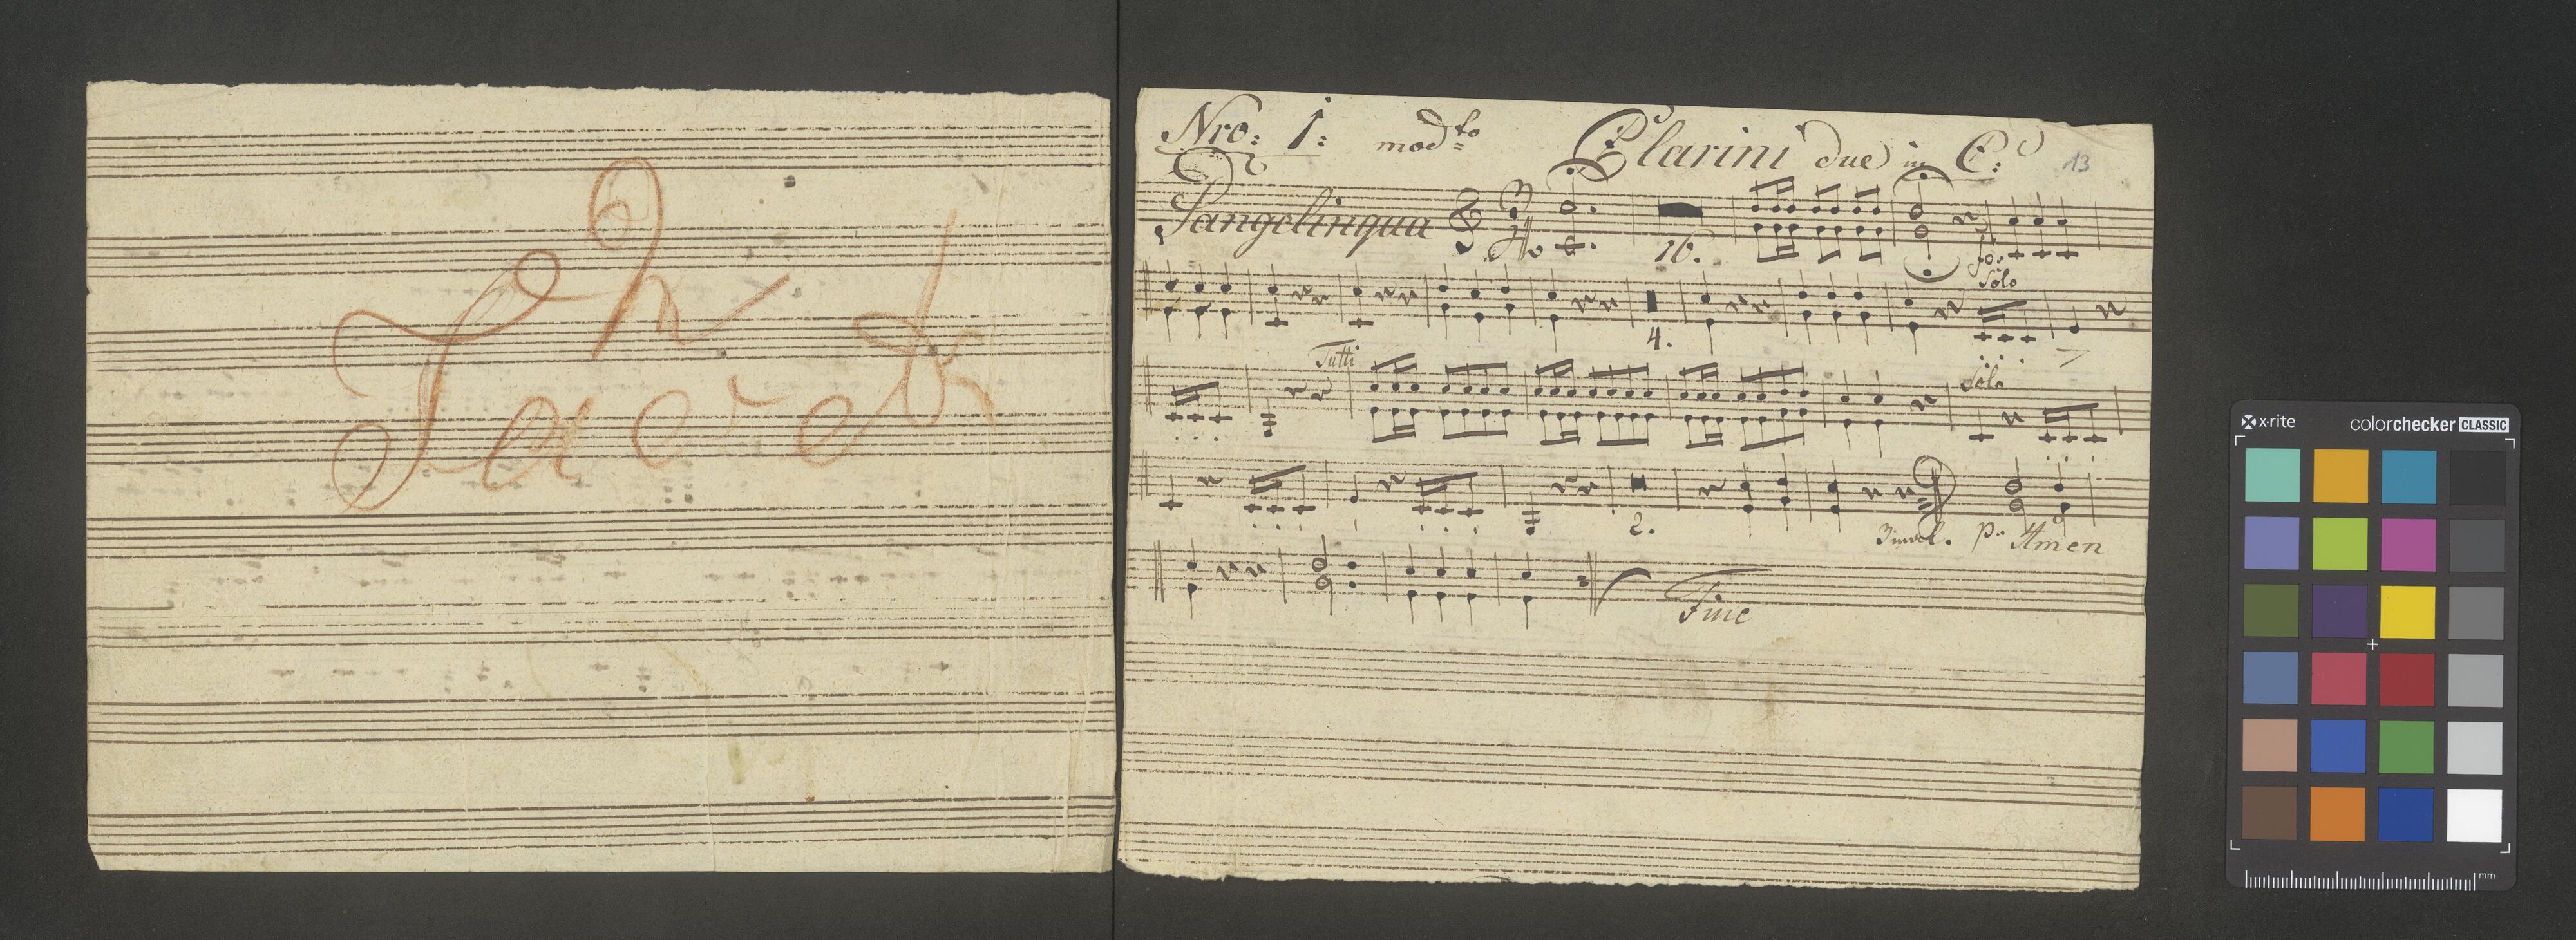 Tacet
Nro: 1: modto Clarini due in C: 13
Pangelinqua
16. fo.
Solo
4.
Tutti
Solo
2. 3mal. p: Amen
Fine
x·rite colorchecker CLASSIC
mm